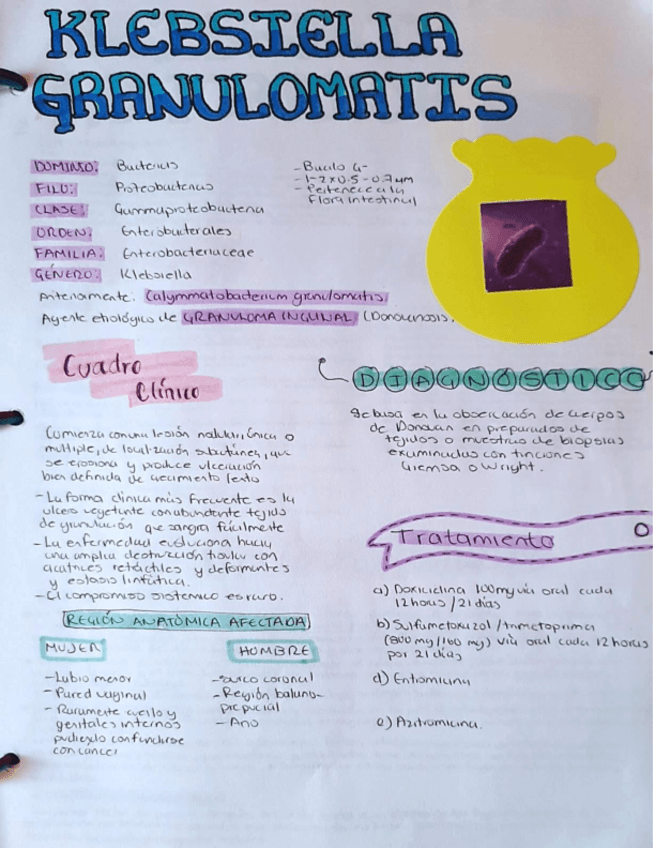 KLEBSIELLA
GRANULOMATIS
DOMINIO: Bacterias
FILO: Proteobacterias
CLASE: Gammaproteobacteria
ORDEN: Enterobacterales
FAMILIA: Enterobacteriaceae
GÉNERO: Klebsiella
- Bacilo G-
- 1-2 x 0.5-0.7 µm
- Pertenece a la
Flora intestinal
Anteriamente: Calymmatobacterium granulomatis
Agente etiológico de GRANULOMA INGUINAL (Donovanosis.
Cuadro
Clínico
Comienza con una lesión nodular, única o
multiple, de localización subcutánea, que
se erosiona y produce ulceración
bien definida de crecimiento lento
- La forma clínica más frecuente es la
ulcera vegetante con abundante tejido
de granulación que sangra fácilmente
- La enfermedad evoluciona hacia
una amplia destrucción tisular con
cicatrices retráctiles y deformantes
y estasis linfática.
- El compromiso sistemico es raro.
REGIÓN ANATÓMICA AFECTADA
MUJER
- Labio menor
- Pared vaginal
- Raramente cuello y
genitales internos
pudiendo confundirse
con cancer
HOMBRE
- Surco coronal
- Región balano-
prepucial
- Ano
DIAGNÓSTICO
Se basa en la observación de cuerpos
de Donovan en preparados de
tejidos o muestras de biopsias
examinadas con tinciones
Giemsa o Wright.
Tratamiento
a) Doxiciclina 100mg vía oral cada
12 horas / 21 días
b) Sulfametoxazol / trimetoprima
(800 mg/160 mg) vía oral cada 12 horas
por 21 días
d) Eritromicina
e) Azitromicina.